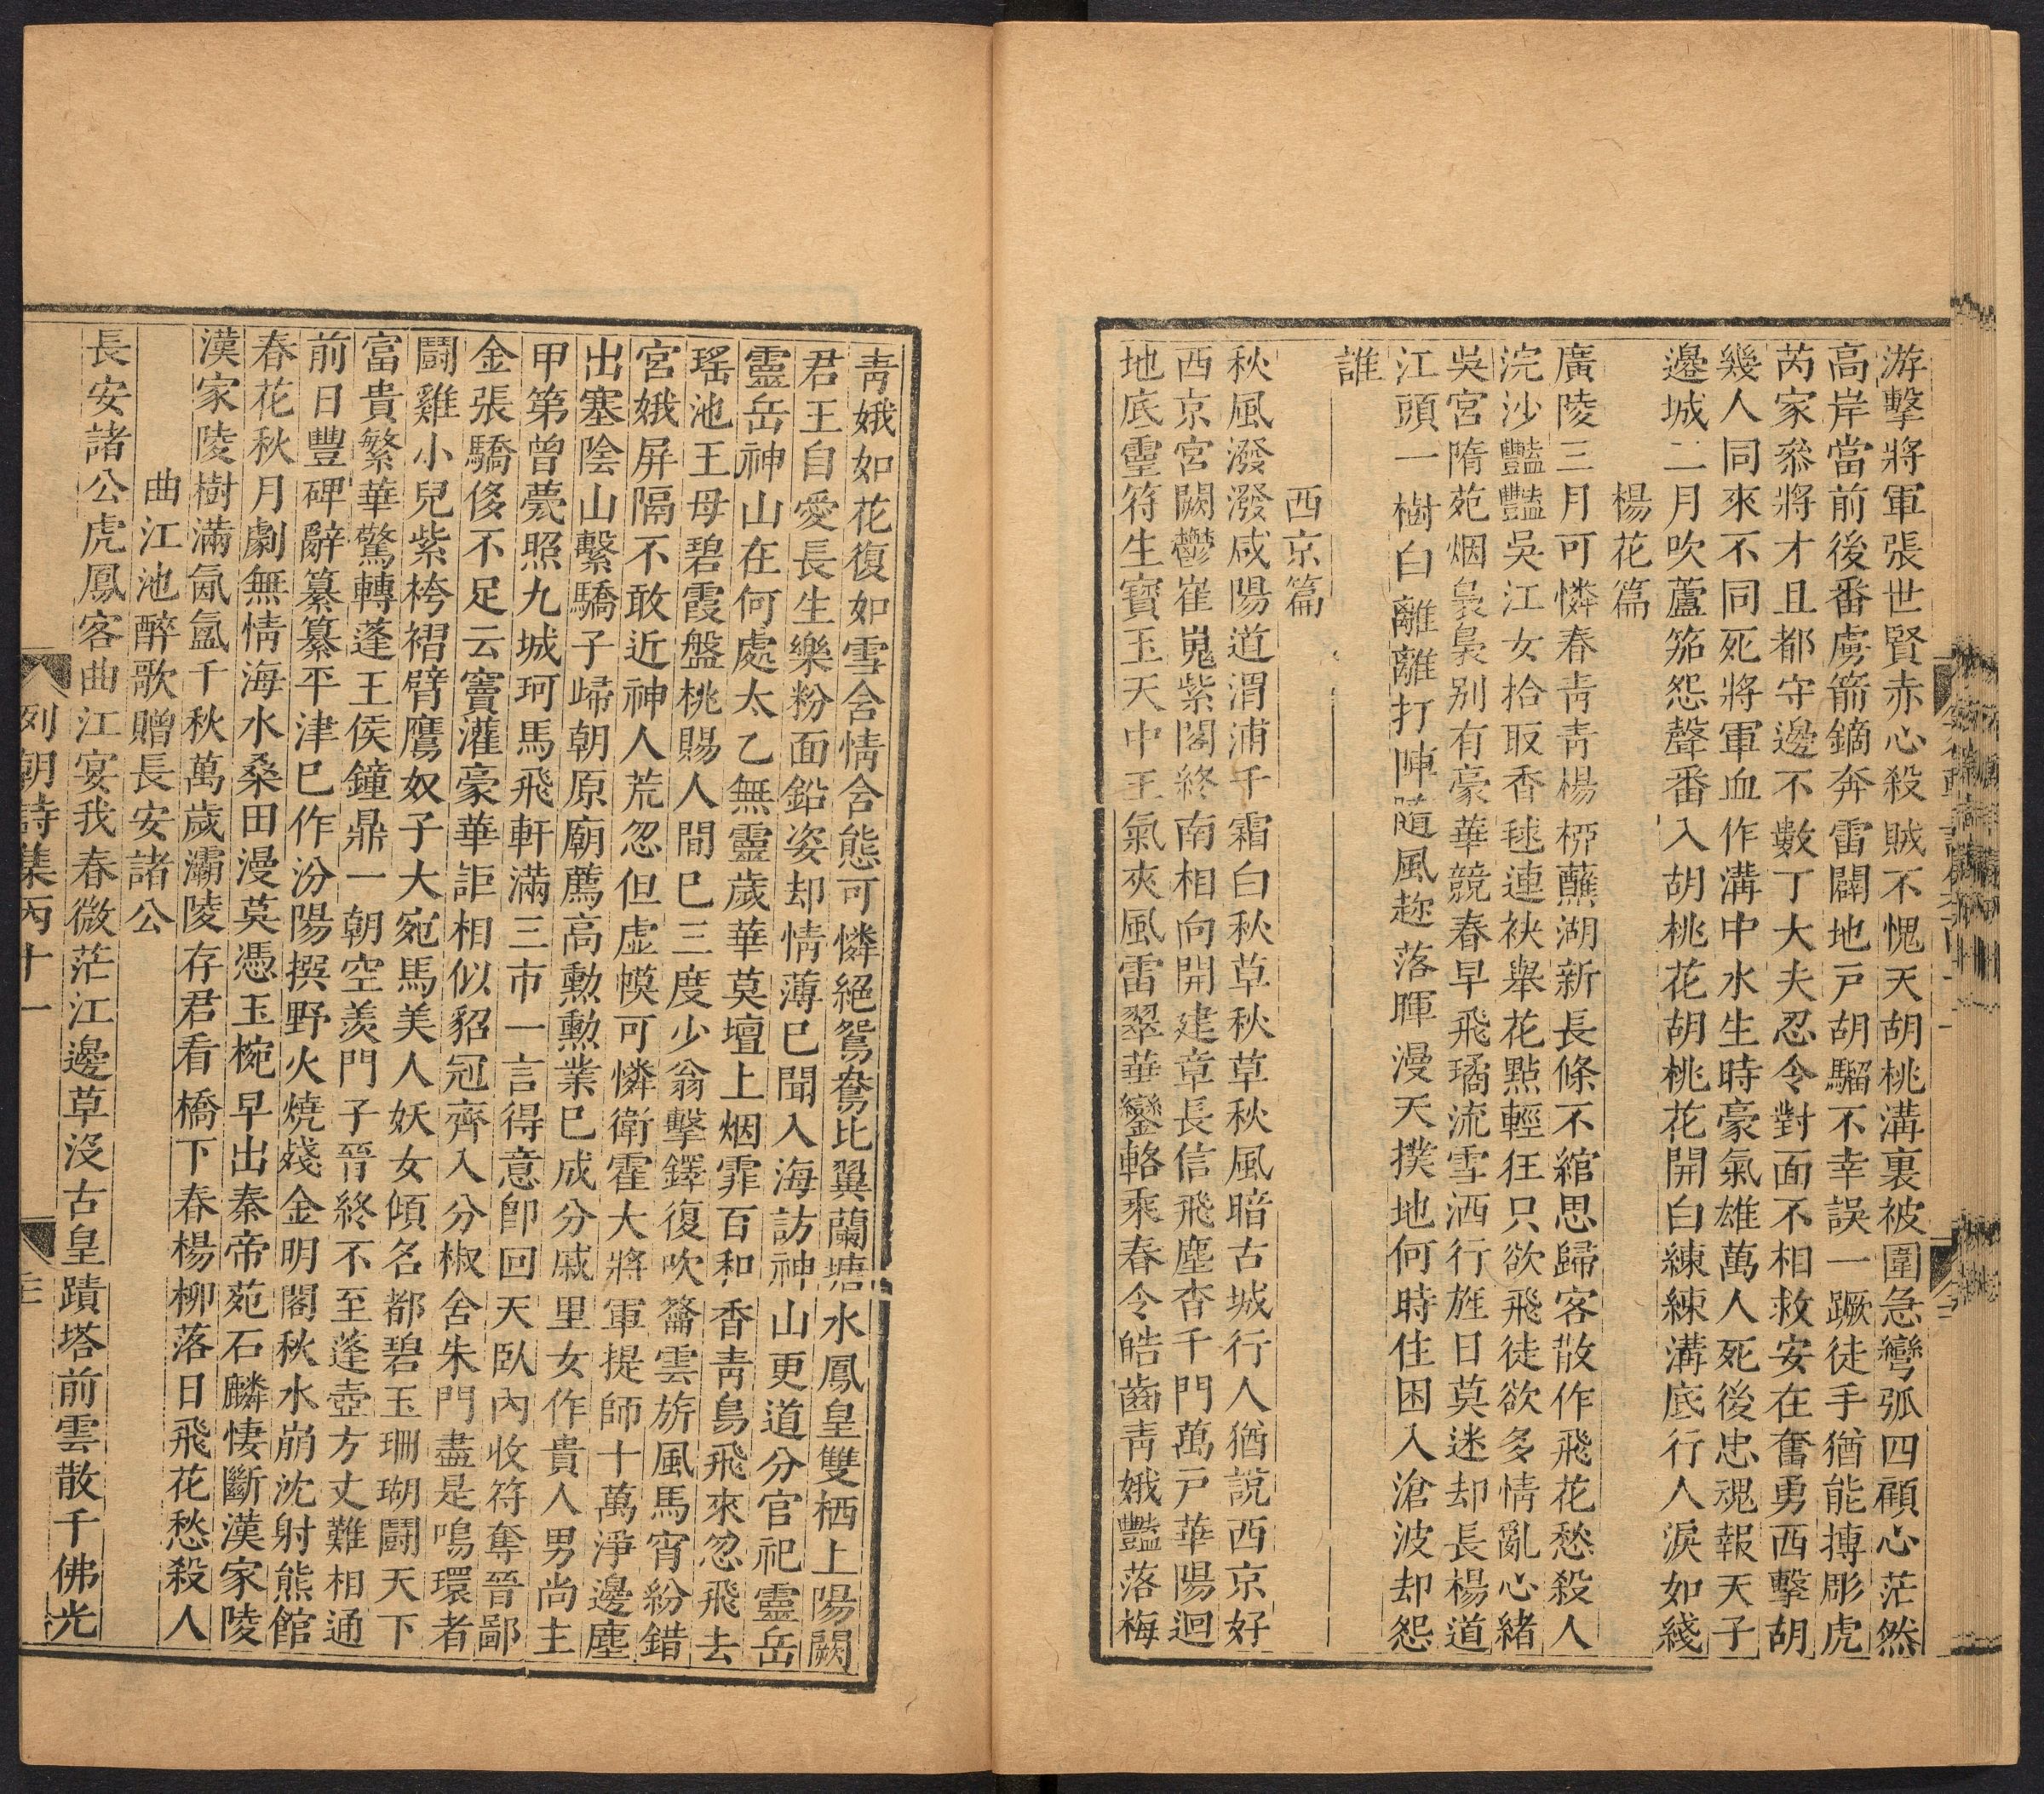 游擊將軍張世賢赤心殺賊不愧天胡桃溝裏被圍急彎弧四顧心茫然
高岸當前後番虜箭鏑奔雷闢地戸胡騮不幸誤一蹶徒手猶能搏彫虎
芮家叅將才且都守邊不數丁大夫忍令對面不相救安在奮勇西擊胡
幾人同來不同死將軍血作溝中水生時豪氣雄萬人死後忠魂報天子
邊城二月吹蘆笳怨聲番入胡桃花胡桃花開白練練溝底行人淚如綫
楊花篇
廣陵三月可憐春青青楊桺蘸湖新長條不綰思歸客散作飛花愁殺人
浣沙豔豔吳江女拾取香毬連袂舉花點輕狂只欲飛徒欲多情亂心緒
吳宮隋苑烟裊裊别有豪華競春早飛璚流雪洒行旌日莫迷却長楊道
江頭一樹白離離打陣隨風趂落暉漫天撲地何時住困入滄波却怨
誰
西京篇
秋風潑潑咸陽道渭浦千霜白秋草秋草秋風暗古城行人猶說西京好
西京宮闕鬱崔嵬紫閣終南相向開建章長信飛塵杳千門萬戸華陽迴
地底靈符生寳玉天中王氣夾風雷翠華鑾輅乘春令皓齒青娥豔落梅
青娥如花復如雪含情含態可憐絕鴛鴦比翼蘭塘水鳳皇雙栖上陽闕
君王自愛長生樂粉面鉛姿却情薄巳聞入海訪神山更道分官祀靈岳
靈岳神山在何處太乙無靈歲華莫壇上烟霏百和香青鳥飛來忽飛去
瑤池王母碧霞盤桃賜人間巳三度少翁擊鐸復吹簫雲旂風馬宵紛錯
宮娥屏隔不敢近神人荒忽但虛幙可憐衛霍大將軍提師十萬淨邊塵
出塞陰山繫驕子歸朝原廟薦高勲勲業巳成分戚里女作貴人男尚主
甲第曾甍照九城珂馬飛軒滿三市一言得意卽回天臥內收符奪晉鄙
金張驕侈不足云竇灌豪華詎相似貂冠齊入分椒舍朱門盡是鳴環者
鬪雞小兒紫袴褶臂鷹奴子大宛馬美人妖女傾名都碧玉珊瑚鬪天下
富貴繁華驚轉蓬王侯鐘鼎一朝空羨門子晉終不至蓬壺方丈難相通
前日豐碑辭纂纂平津巳作汾陽撰野火燒殘金明閣秋水崩沈射熊館
春花秋月劇無情海水桑田漫莫憑玉椀早出秦帝苑石麟悽斷漢家陵
漢家陵樹滿氤氳千秋萬歲灞陵存君看橋下春楊柳落日飛花愁殺人
曲江池醉歌贈長安諸公
長安諸公虎鳳客曲江宴我春微茫江邊草沒古皇蹟塔前雲散千佛光
列朝詩集丙十一